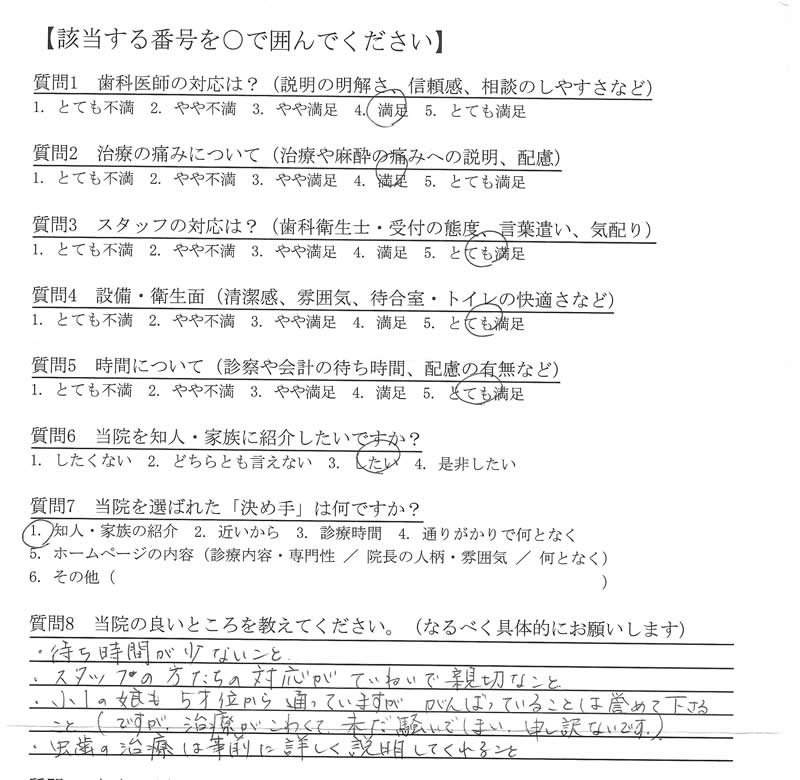 【該当する番号を○で囲んでください】
質問1 歯科医師の対応は？（説明の明解さ、信頼感、相談のしやすさなど）
1. とても不満 2. やや不満 3. やや満足 4. 満足 5. とても満足
質問2 治療の痛みについて（治療や麻酔の痛みへの説明、配慮）
1. とても不満 2. やや不満 3. やや満足 4. 満足 5. とても満足
質問3 スタッフの対応は？（歯科衛生士・受付の態度、言葉遣い、気配り）
1. とても不満 2. やや不満 3. やや満足 4. 満足 5. とても満足
質問4 設備・衛生面（清潔感、雰囲気、待合室・トイレの快適さなど）
1. とても不満 2. やや不満 3. やや満足 4. 満足 5. とても満足
質問5 時間について（診察や会計の待ち時間、配慮の有無など）
1. とても不満 2. やや不満 3. やや満足 4. 満足 5. とても満足
質問6 当院を知人・家族に紹介したいですか？
1. したくない 2. どちらとも言えない 3. したい 4. 是非したい
質問7 当院を選ばれた「決め手」は何ですか？
1. 知人・家族の紹介 2. 近いから 3. 診療時間 4. 通りがかりで何となく
5. ホームページの内容（診療内容・専門性 ／ 院長の人柄・雰囲気 ／ 何となく）
6. その他（ ）
質問8 当院の良いところを教えてください。（なるべく具体的にお願いします）
・待ち時間が少ないこと
・スタッフの方たちの対応がていねいで親切なこと
・小1の娘も5才位から通っていますががんばっていることは誉めて下さる
こと（ですが、治療がこわくて未だ騒いでしまい、申し訳ないです。）
・虫歯の治療は事前に詳しく説明してくれること